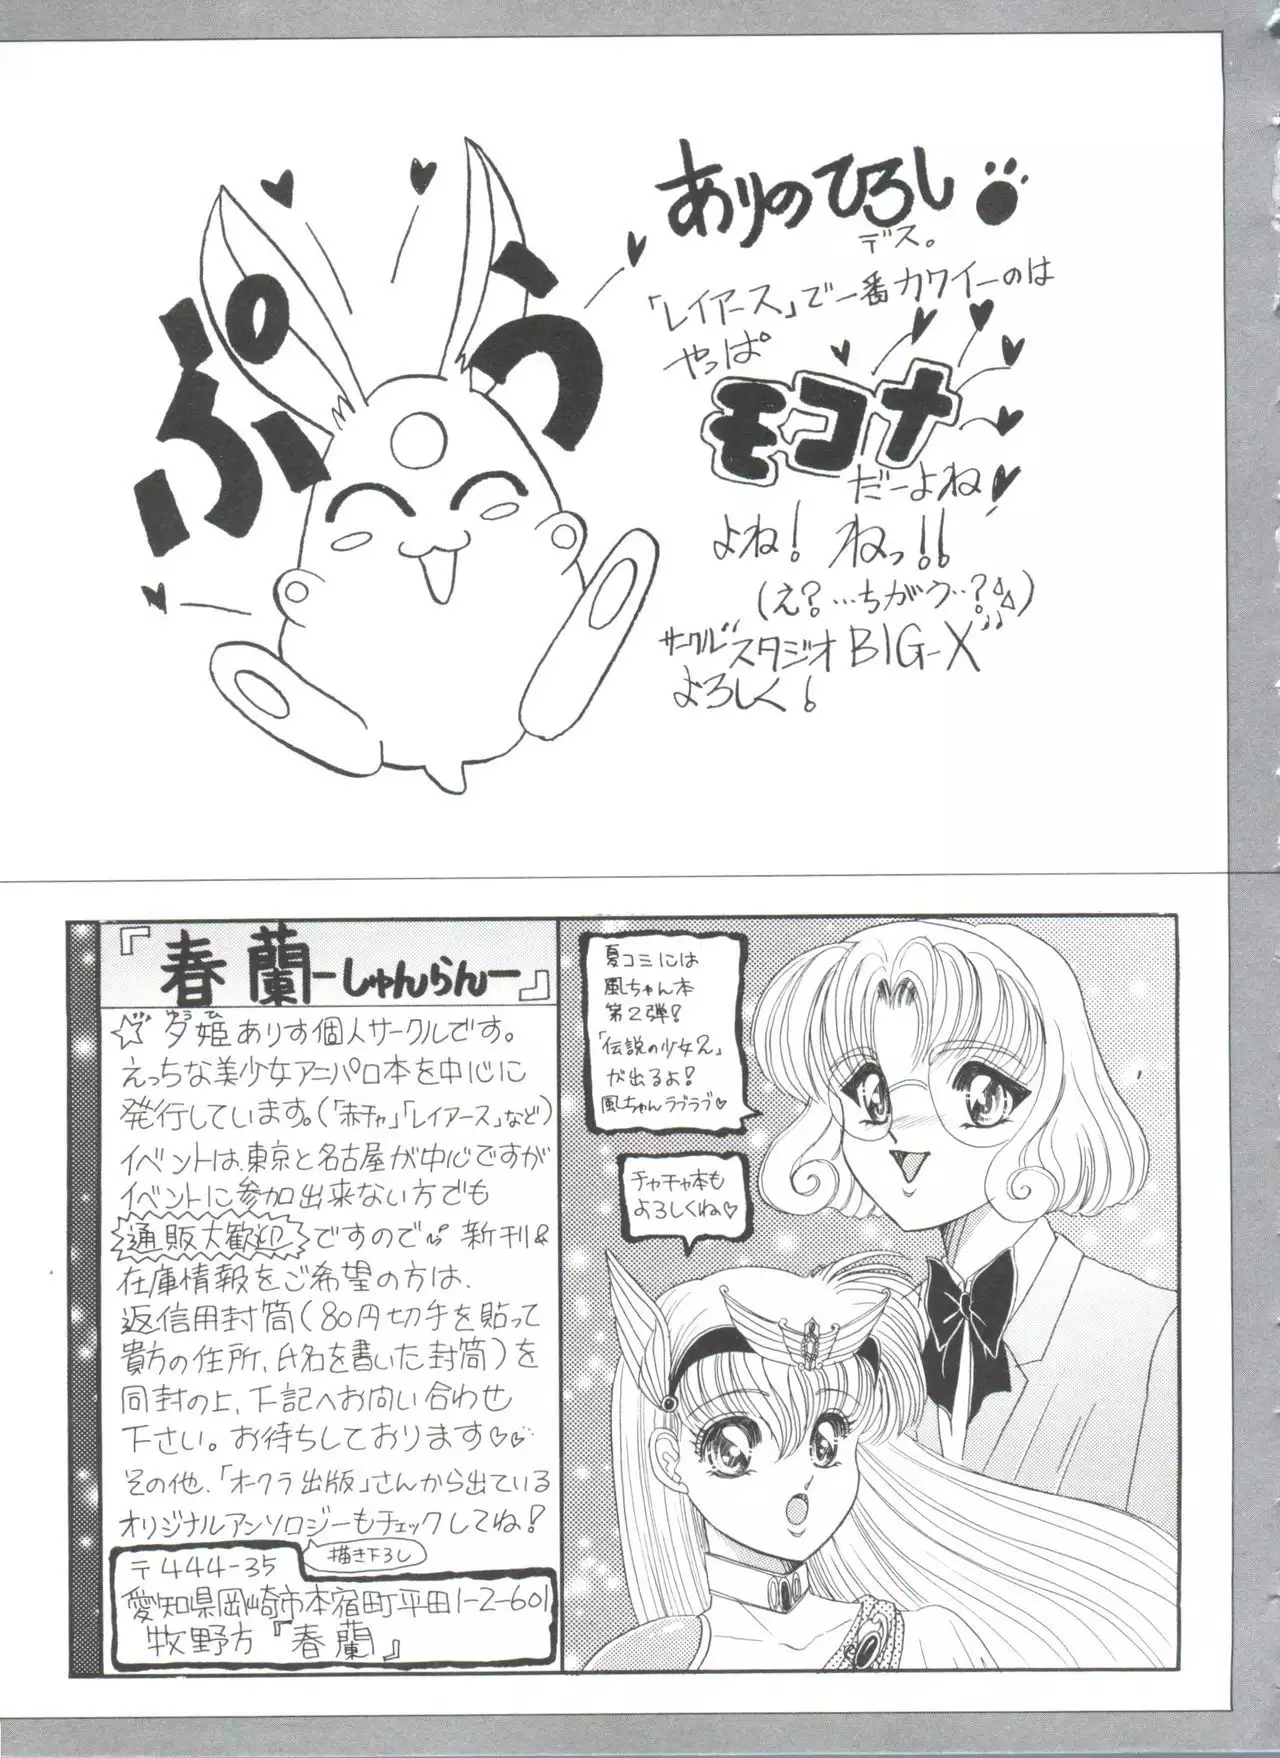 ぷう
ありのひろし
デス。
「レイアース」で一番カワイーのは
やっぱ
モコナ
だーよね
よね! ねっ!!
(え?…ちがう…?)
サークル"スタジオBIG-X"
よろしく!
『春蘭ーしゅんらんー』
ゆうひ
☆夕姫ありす個人サークルです。
えっちな美少女アニパロ本を中心に
発行しています。(「赤チャ」「レイアース」など)
イベントは、東京と名古屋が中心ですが
イベントに参加出来ない方でも
通販大歓迎ですので 新刊&
在庫情報をご希望の方は、
返信用封筒(80円切手を貼って
貴方の住所、氏名を書いた封筒)を
同封の上、下記へお問い合わせ
下さい。お待ちしております♡♡
その他、「オークラ出版」さんから出ている
オリジナルアンソロジーもチェックしてね!
描き下ろし
〒444-35
愛知県岡崎市本宿町平田1-2-601
牧野方『春蘭』
夏コミには
風ちゃん本
第2弾!
「伝説の少女2」
が出るよ!
風ちゃんラブラブ♡
チャチャ本も
よろしくね♡